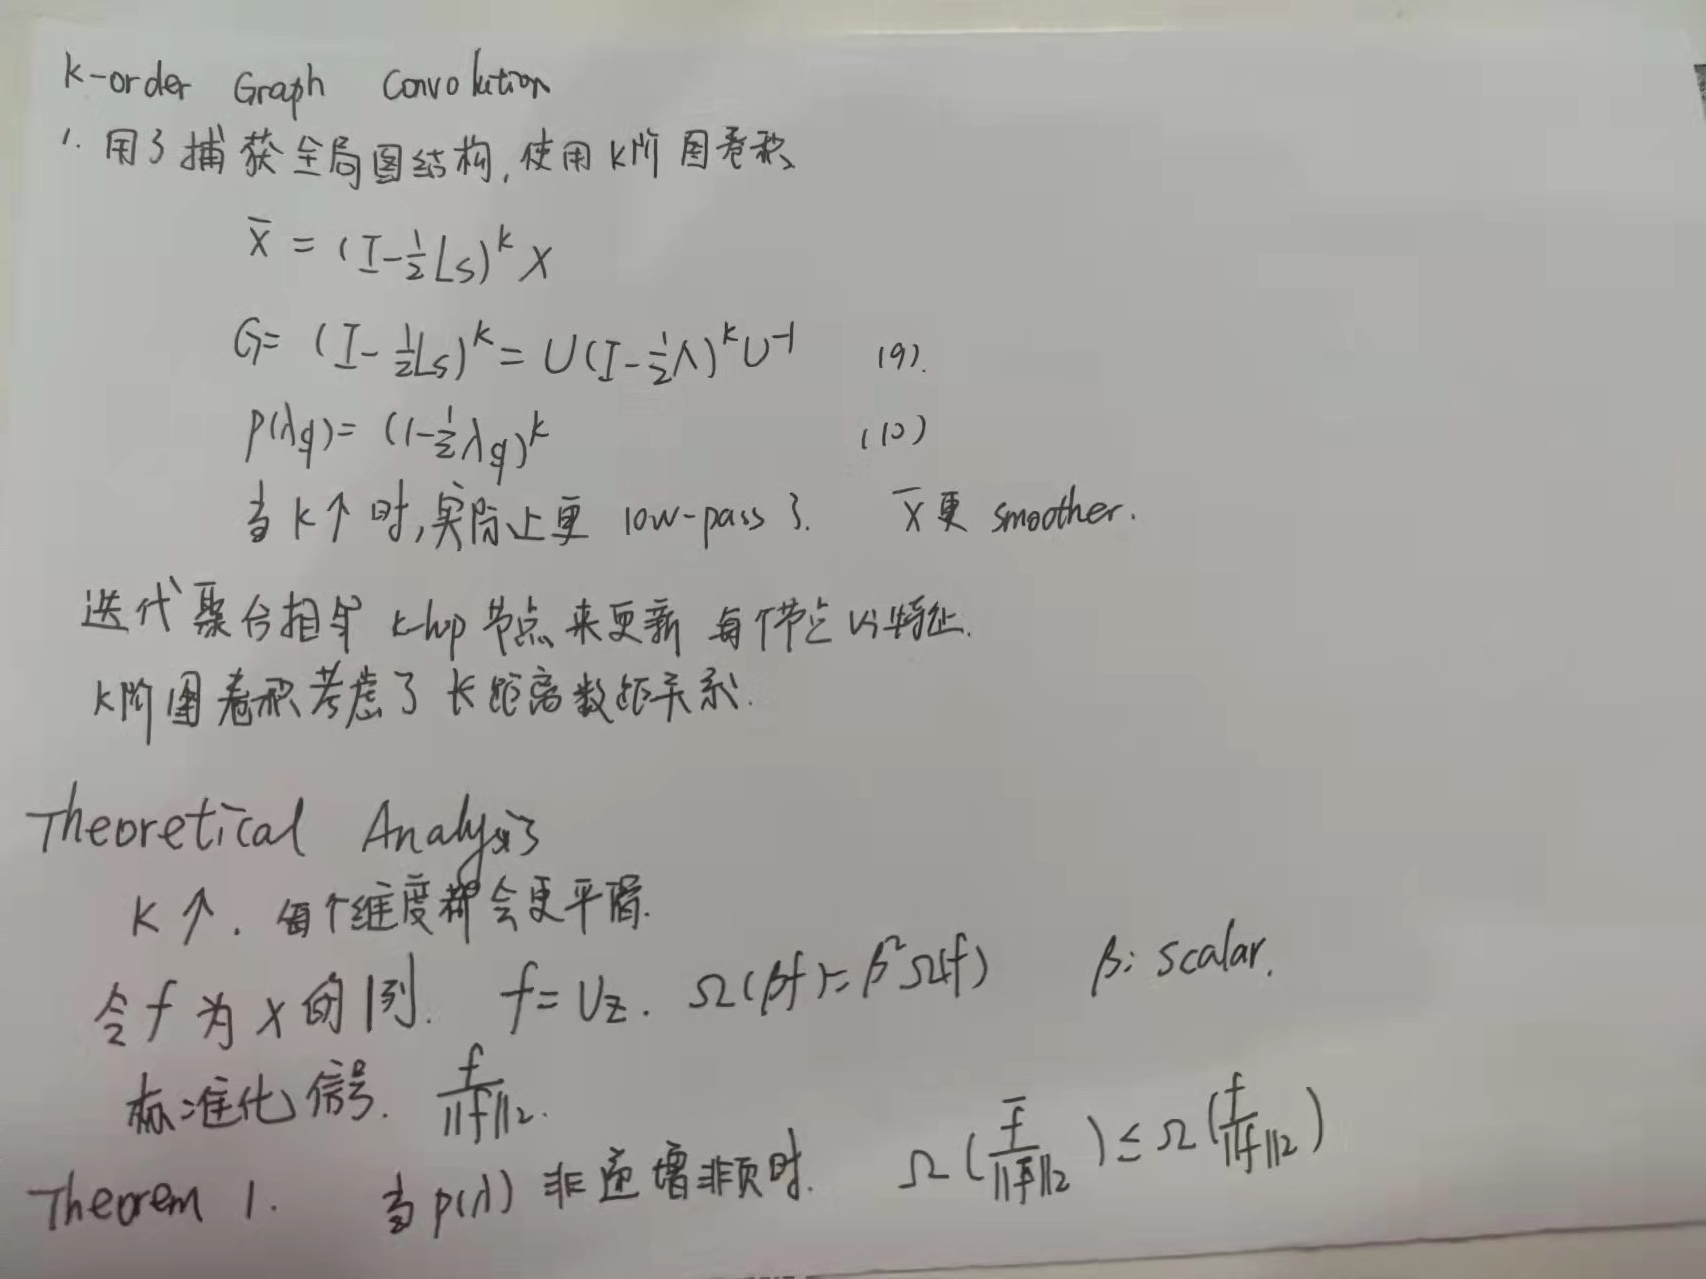 k-order Graph Convolution
1. 用了捕获全局图结构,使用K阶图卷积
X̄ = (I-½Ls)^k X
G= (I-½Ls)^k = U(I-½Λ)^k U⁻¹ (9).
p(λq)= (1-½λq)^k (10)
当K↑时,实际上更 low-pass了. X̄更 smoother.
迭代聚合相邻 k-hop 节点来更新 每个节点的特征.
K阶图卷积考虑了 长距离数据关系.
Theoretical Analysis
K↑. 每个维度都会更平滑.
令f为X的1列. f=Uz. Ω(βf)=β²Ω(f) β: scalar.
标准化信号. f/‖f‖₂.
Theorem 1. 当p(λ)非递增非负时. Ω(f̄/‖f̄‖₂)≤Ω(f/‖f‖₂)